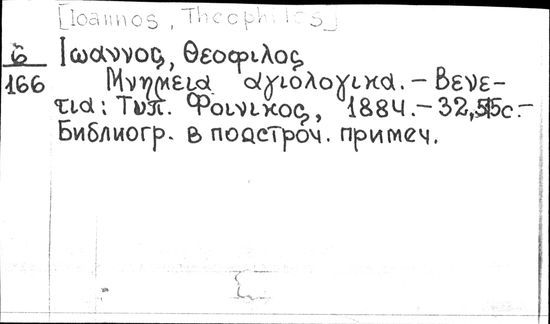 [Ioannos, Theophilos]
6 Ιωαννος, Θεοφιλος
166 Μνημεια αγιολογικα. – Βενε-
τια: Τυπ. Φοινικος, 1884. – 32, 515с. –
Библиогр. в подстроч. примеч.